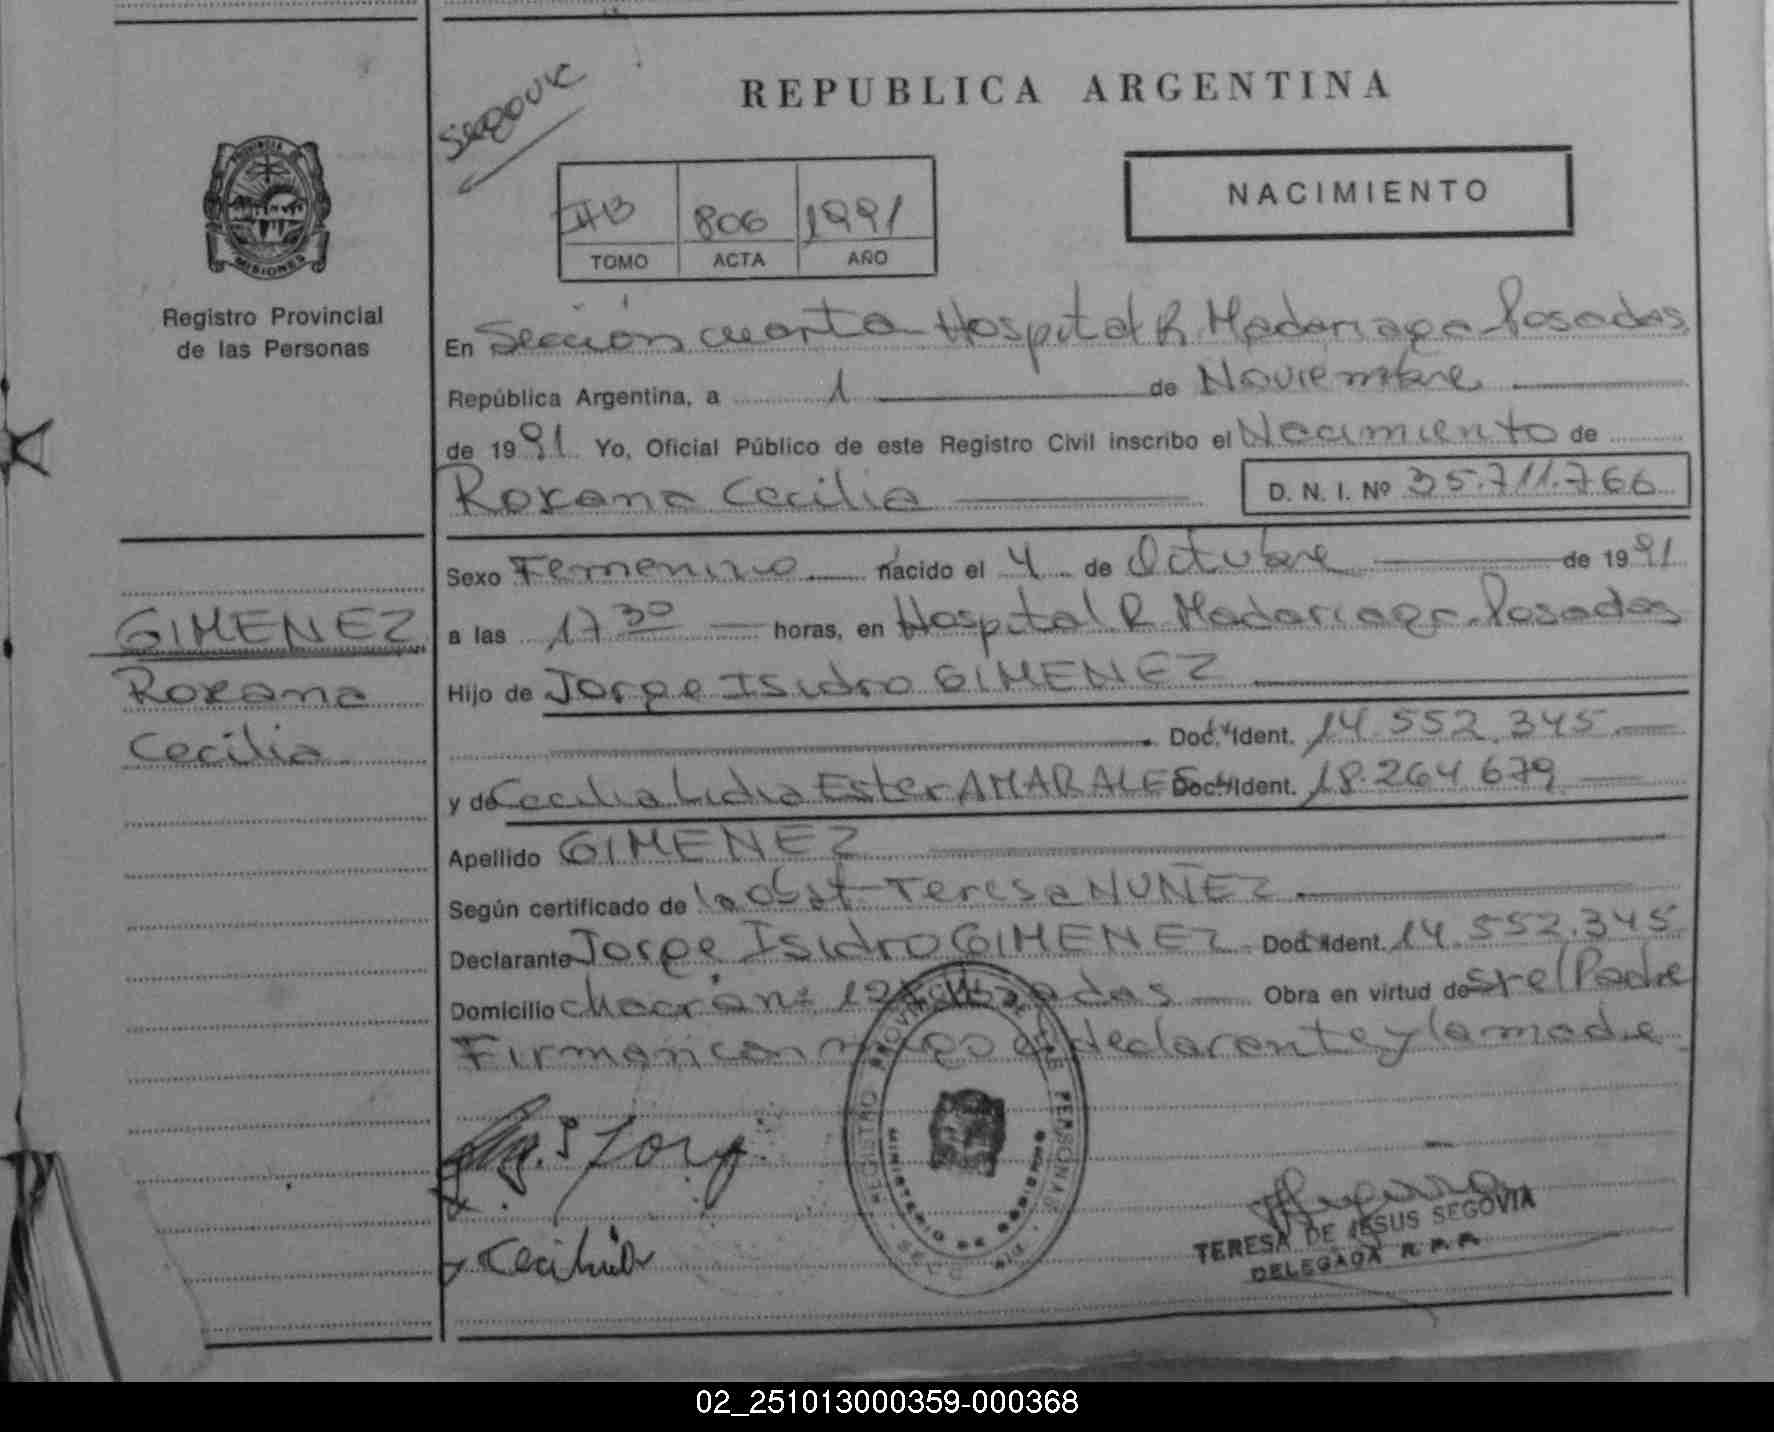 Segovia
REPUBLICA ARGENTINA
NACIMIENTO
806 1991
TOMO ACTA AÑO
PROVINCIA
MISIONES
Registro Provincial
de las Personas
En Sección cuarta Hospital R. Madariaga Posadas
República Argentina, a 1 de Noviembre
de 1991 Yo, Oficial Público de este Registro Civil inscribo el Nacimiento de
Roxana Cecilia D. N. I. Nº 35.711.766
GIMENEZ
Roxana
Cecilia
Sexo Femenino nacido el 4 de Octubre de 1991
a las 17 30 horas, en Hospital R. Madariaga. Posadas
Hijo de Jorge Isidro GIMENEZ
Doc. Ident. 14.552.345
y de Cecilia Lidia Ester AMARALES Doc. Ident. 18.264.679
Apellido GIMENEZ
Según certificado de la Obst. Teresa NUÑEZ
Declarante Jorge Isidro GIMENEZ Doc. Ident. 14.552.345
Domicilio chacra nº Posadas Obra en virtud de ser el Padre
Firman conmigo el declarante y la madre
REGISTRO PROVINCIAL DE LAS PERSONAS
MINISTERIO DE GOBIERNO
Cecilia
TERESA DE JESUS SEGOVIA
DELEGADA R. P. P.
02_251013000359-000368